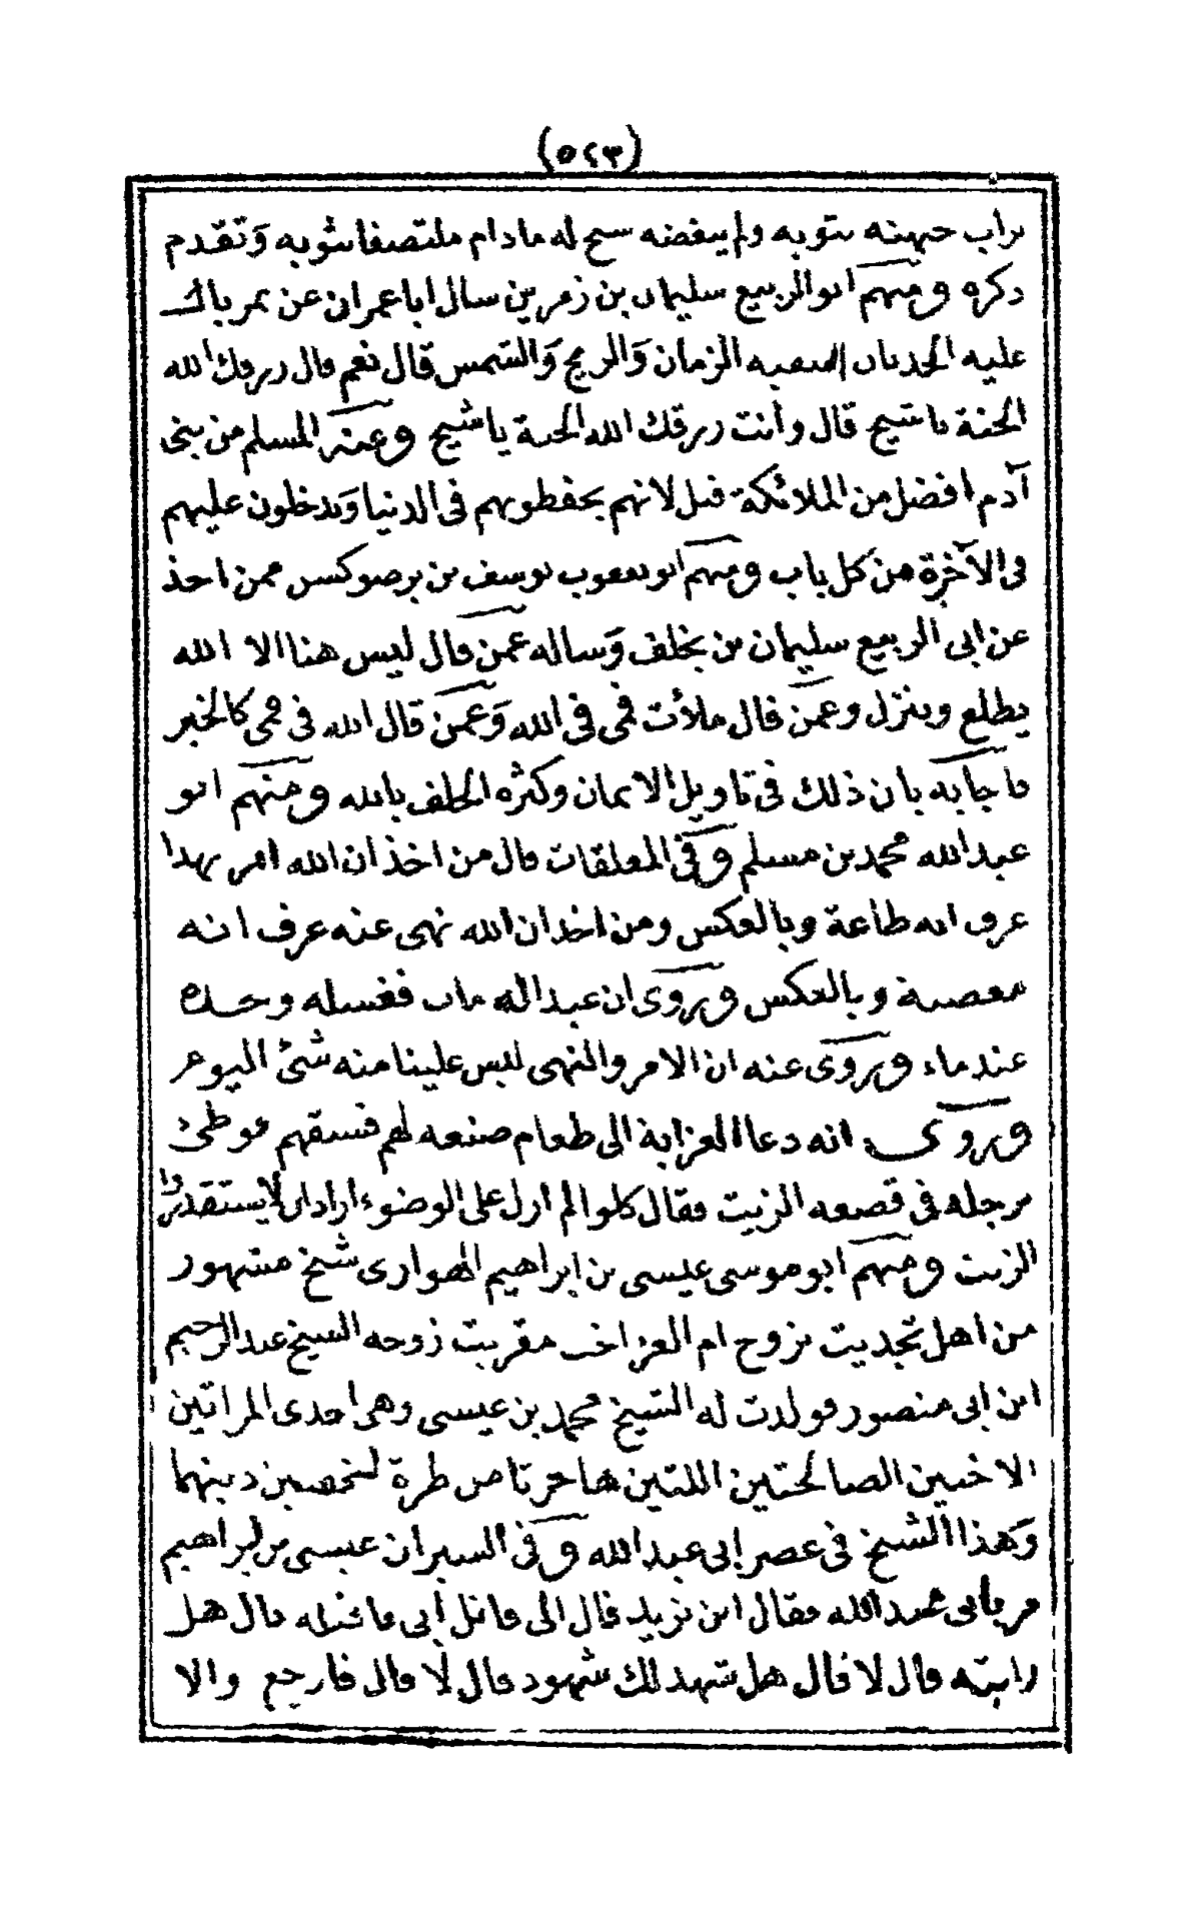 (٥٢٣)
تراب جبهته بثوبه ولم ينفضه سبح له مادام ملتصقا بثوبه وَتقدم
ذكره ومنهم ابو الربيع سليمان بن زمرين سال ابا عمران عن تمر بالت
عليه الجديان انصيبه الزمان وَالريح وَالشمس قال نعم قال رزقك الله
الجنة يا شيخ قال وأنت رزقك الله الجنة يا شيخ وعنه المسلم من بنى
آدم افضل من الملائكة قيل لانهم يحفظونهم فى الدنيا وَيدخلون عليهم
فى الآخرة من كل باب ومنهم ابو يعقوب يوسف بن يرصوكسن ممن اخذ
عن ابى الربيع سليمان بن يخلف وَساله عمن قال ليس هنا الا الله
يطلع وينزل وعمن قال ملأت فمى فى الله وَعمن قال الله فى فمى كالخبر
فاجابه بان ذلك فى تاويل الايمان وكثرة الحلف بالله ومنهم ابو
عبد الله محمد بن مسلم وفى المعلقات قال من اخذ ان الله امر بهذا
عرف انه طاعة وبالعكس ومن اخذ ان الله نهى عنه عرف انه
معصية وبالعكس وروى ان عبدا له مات فغسله وحده
عند ماء وروى عنه ان الامر والنهى ليس علينا منه شئ اليوم
وروى انه دعا العزابة الى طعام صنعه لهم فسبقهم فوطئ
برجله فى قصعه الزيت فقال كلوا لم ازل على الوضوء اراد ان لا يستقذروا
الزيت ومنهم ابو موسى عيسى بن ابراهيم الهوارى شيخ مشهور
من اهل تجديت تزوج ام العز اخت مقرينت زوجه الشيخ عبد الرحيم
ابن ابى منصور فولدت له الشيخ محمد بن عيسى وهى احدى المراتين
الاختين الصالحتين اللتين هاجرتا من طرة لتحصين دينهما
وَهذا الشيخ فى عصر ابى عبد الله وفى السيران عيسى بن ابراهيم
مر بابى عبد الله فقال اين تريد قال الى قاتل أبى فاقتله قال هل
رايته قال لا قال هل شهد لك شهود قال لا قال فارجع والا